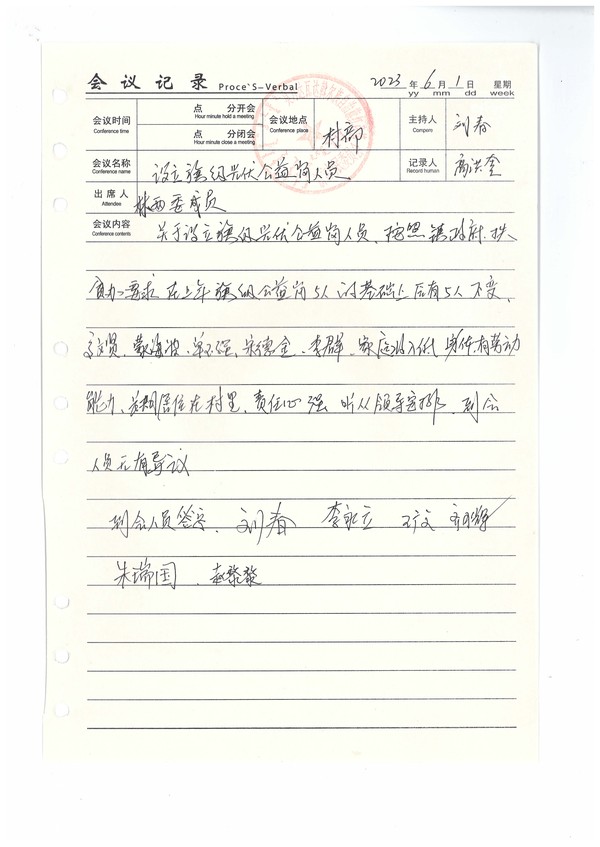 会议记录 Proce`S-Verbal 2023年6月1日 星期
yy mm dd week
会议时间 Conference time 点 分开会 Hour minute hold a meeting
点 分闭会 Hour minute close a meeting
会议地点 Conference place 村部
主持人 Compero 刘春
会议名称 Conference name 设立旗级光伏公益岗人员
记录人 Record human 高洪奎
出席人 Attendee 村两委成员
会议内容 Conference contents 关于设立旗级光伏公益岗人员、按照镇政府、扶
贫办要求在上年旗级公益岗5人的基础上原有5人不变、
宋德金、李群、家庭收入低 身体有劳动
能力、长期居住在村里、责任心强 听从领导安排、到会
人员无有异议
到会人员签字、刘春 李永立 王文
朱瑞国、赵黎黎